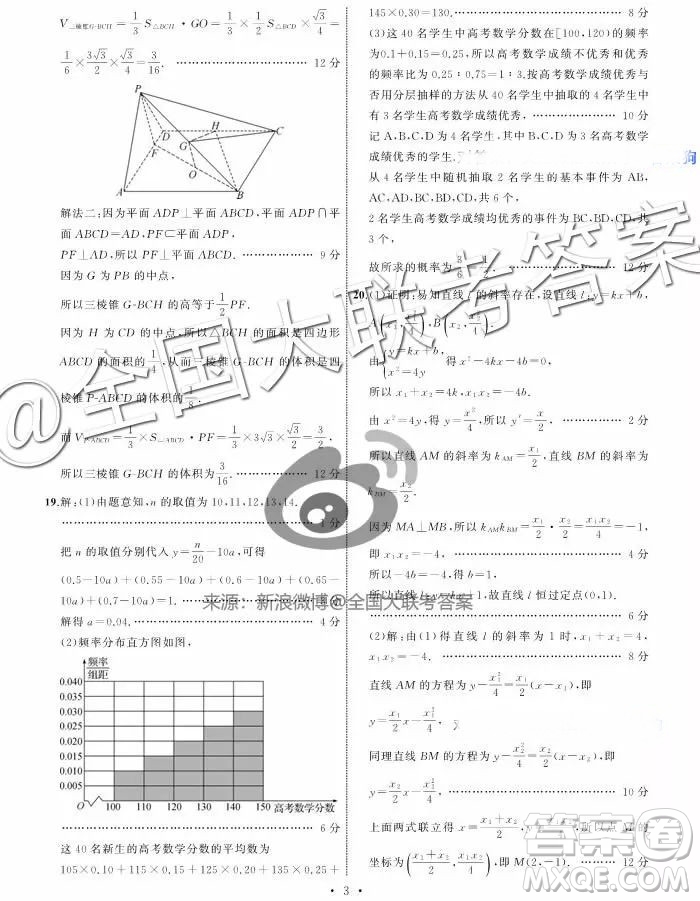 V三棱锥G-BCH = 1/3 S△BCH · GO = 1/3 × 1/2 S△BCD × √3/4 =
1/6 × 3√3/2 × √3/4 = 3/16. 12 分
P
D
H
C
G
F
O
A
B
解法二:因为平面 ADP⊥平面 ABCD,平面 ADP∩平
面 ABCD=AD,PF⊂平面 ADP,
PF⊥AD,所以 PF⊥平面 ABCD. 9 分
因为 G 为 PB 的中点,
所以三棱锥 G-BCH 的高等于 1/2 PF.
因为 H 为 CD 的中点,所以△BCH 的面积是四边形
ABCD 的面积的 1/4,从而三棱锥 G-BCH 的体积是四
棱锥 P-ABCD 的体积的 1/8.
而 V P-ABCD = 1/3 × S ABCD · PF = 1/3 × 3√3 × √3/2 = 3/2,
所以三棱锥 G-BCH 的体积为 3/16. 12 分
19.解:(1)由题意知,n 的取值为 10,11,12,13,14.
1 分
把 n 的取值分别代入 y = n/20 − 10a,可得
(0.5−10a)+(0.55−10a)+(0.6−10a)+(0.65−
10a)+(0.7−10a)=1.
解得 a=0.04. 4 分
(2)频率分布直方图如图,
频率/组距
0.040
0.035
0.030
0.025
0.020
0.015
0.010
0.005
O 100 110 120 130 140 150 高考数学分数
6 分
这 40 名新生的高考数学分数的平均数为
105×0.10+115×0.15+125×0.20+135×0.25+
145×0.30=130. 8 分
(3)这 40 名学生中高考数学分数在[100,120)的频率
为0.1+0.15=0.25,所以高考数学成绩不优秀和优秀
的频率比为 0.25∶0.75=1∶3.按高考数学成绩优秀与
否用分层抽样的方法从 40 名学生中抽取的 4 名学生中
有 3 名学生高考数学成绩优秀. 10 分
记 A,B,C,D 为 4 名学生,其中 B,C,D 为高考数学
成绩优秀的学生.
从 4 名学生中随机抽取 2 名学生的基本事件为 AB,
AC,AD,BC,BD,CD,共 6 个,
2 名学生高考数学成绩均优秀的事件为 BC,BD,CD,共
3 个,
故所求的概率为 3/6 = 1/2. 12 分
20.(1)证明:易知直线 l 的斜率存在,设直线 l:y=kx+b,
A(x₁, x₁²/4), B(x₂, x₂²/4).
由 {y=kx+b, x²=4y 得 x²−4kx−4b=0,
所以 x₁+x₂=4k,x₁x₂=−4b.
由 x²=4y,得 y = x²/4,所以 y′ = x/2. 2 分
所以直线 AM 的斜率为 kAM = x₁/2,直线 BM 的斜率为
kBM = x₂/2.
因为 MA⊥MB,所以 kAM kBM = x₁/2 · x₂/2 = x₁x₂/4 = −1,
即 x₁x₂=−4, 4 分
所以−4b=−4,得 b=1,故直线 l 恒过定点(0,1).
6 分
(2)解:由(1)得直线 l 的斜率为 1 时,x₁+x₂=4,
x₁x₂=−4. 8 分
直线 AM 的方程为 y − x₁²/4 = x₁/2 (x−x₁),即
y = x₁/2 x − x₁²/4,
同理直线 BM 的方程为 y − x₂²/4 = x₂/2 (x−x₂),即
y = x₂/2 x − x₂²/4, 10 分
上面两式联立得 x = (x₁+x₂)/2, y = x₁x₂/4,所以点 M 的
坐标为 ((x₁+x₂)/2, x₁x₂/4),即 M(2,−1). 12 分
· 3 ·
@全国大联考答案
来源:新浪微博@全国大联考答案
答案圈
MXQE.COM